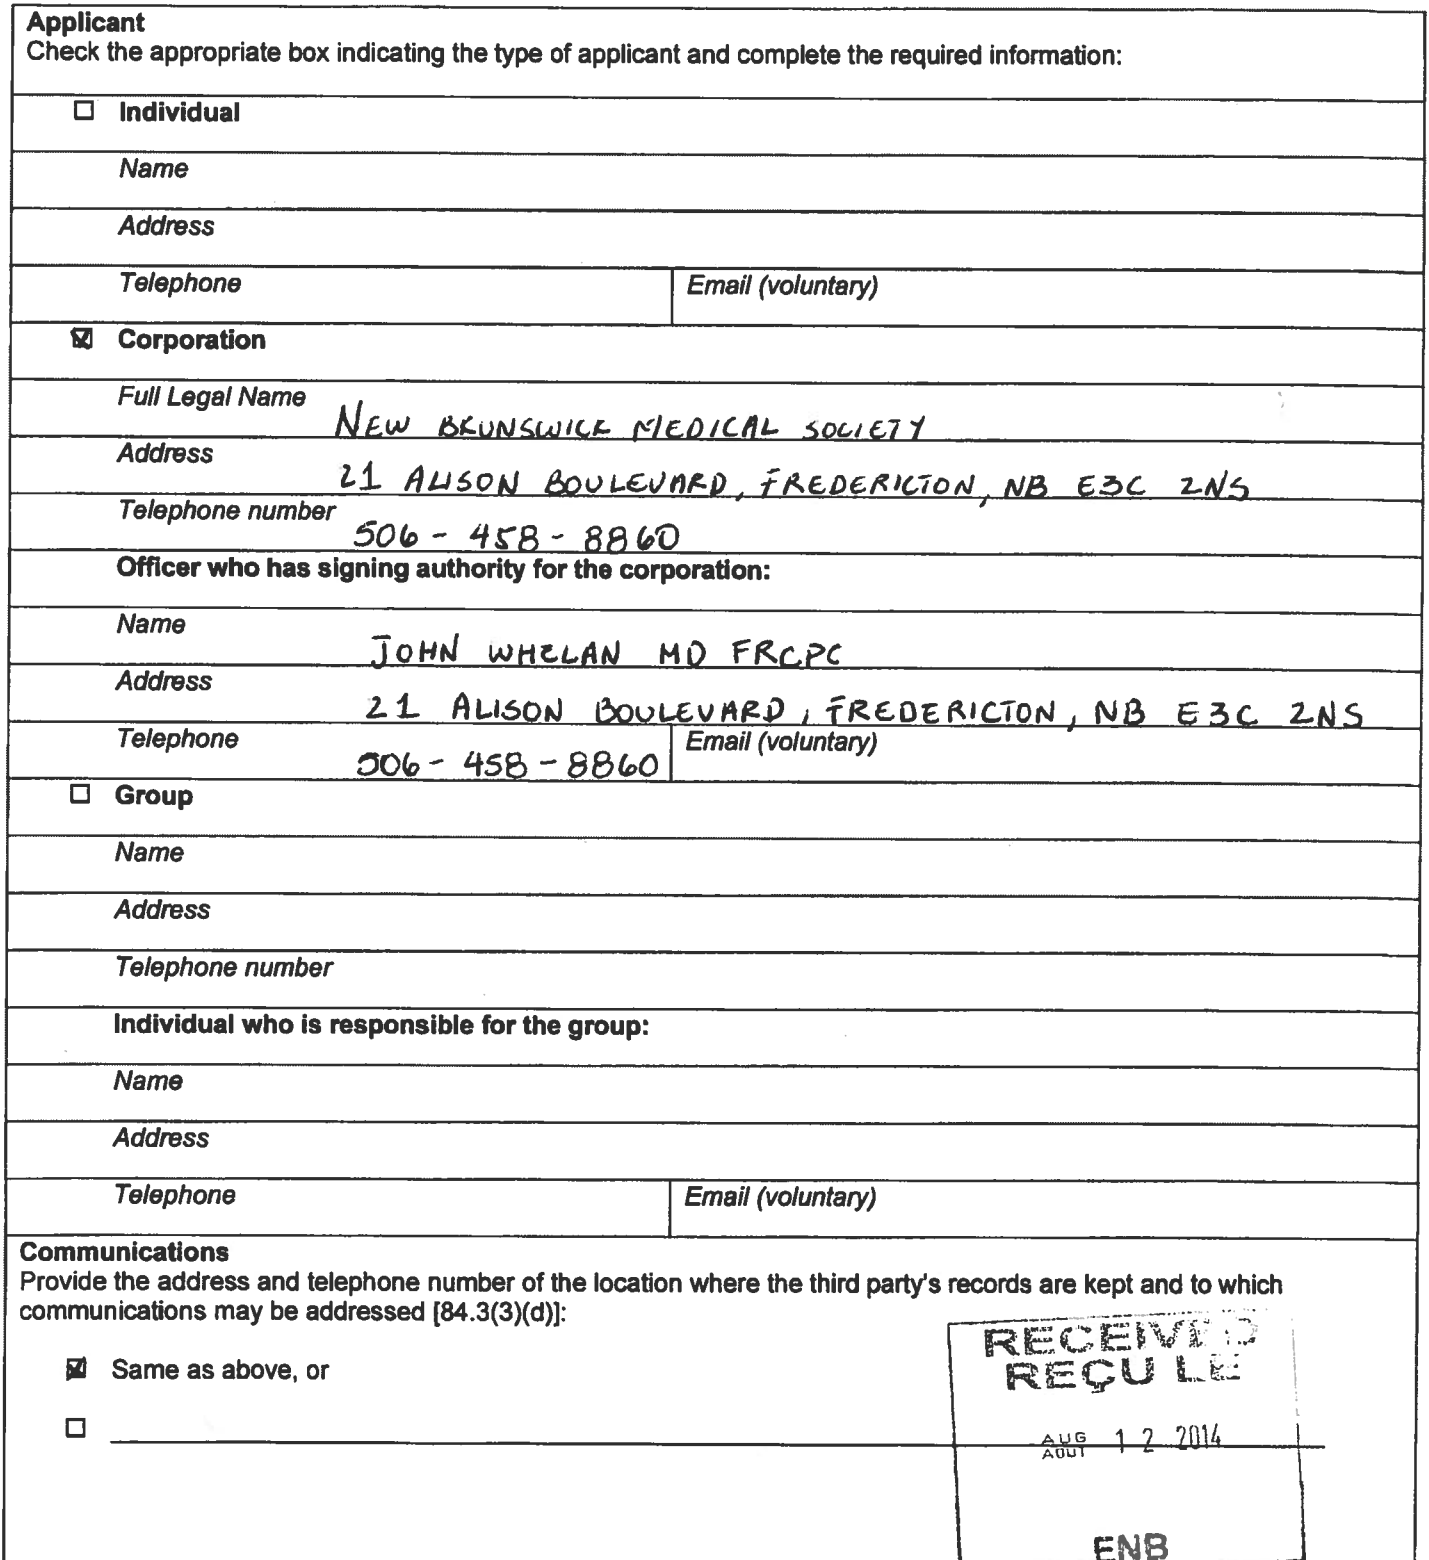 Applicant
Check the appropriate box indicating the type of applicant and complete the required information:
☐ Individual
Name
Address
Telephone Email (voluntary)
☒ Corporation
Full Legal Name NEW BRUNSWICK MEDICAL SOCIETY
Address 21 ALISON BOULEVARD, FREDERICTON, NB E3C 2N5
Telephone number 506-458-8860
Officer who has signing authority for the corporation:
Name JOHN WHELAN MD FRCPC
Address 21 ALISON BOULEVARD, FREDERICTON, NB E3C 2N5
Telephone 506-458-8860 Email (voluntary)
☐ Group
Name
Address
Telephone number
Individual who is responsible for the group:
Name
Address
Telephone Email (voluntary)
Communications
Provide the address and telephone number of the location where the third party's records are kept and to which
communications may be addressed [84.3(3)(d)]:
☒ Same as above, or
☐
RECEIVED
REÇU LE
AUG
AOUT 12 2014
ENB